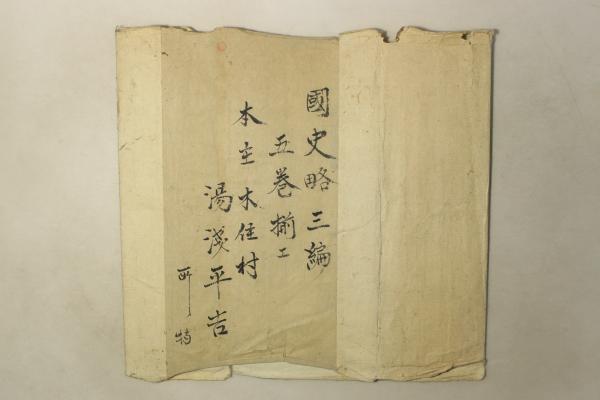 國史略三編
五巻揃工
本主木住村
湯淺平吉
所特